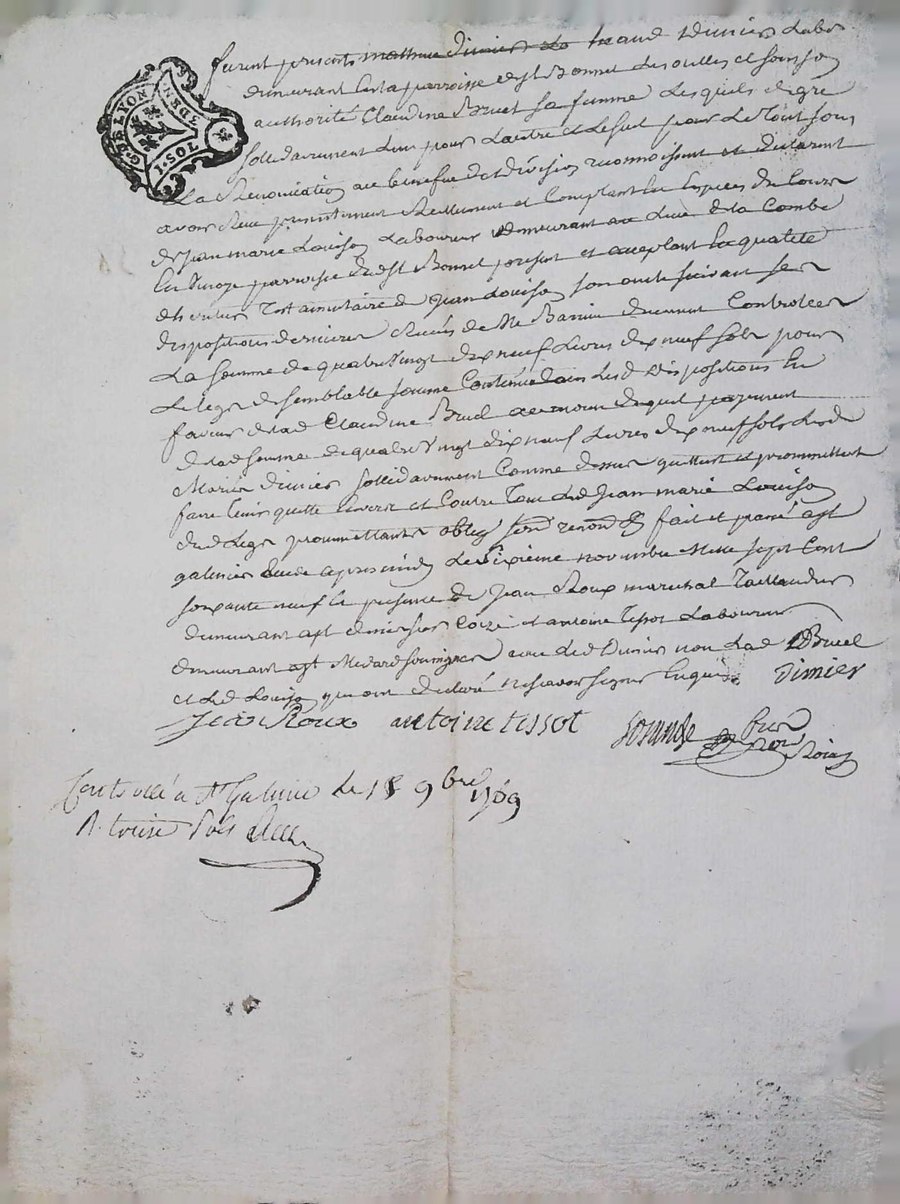 G. DE LYON
3 DEN.
1. SOL
furent presents mathieu dimier dimier Labr
demeurant en la parroisse de st Bonnet Les oulles et sous son
authorité Claudine Bruel sa femme Lesquels de gré
sollidairement l'un pour Lautre et Le seul pour Le tout sous
La Renonciation au benefice de division reconnoissent et declarent
avoir Receu presentement Reellement et Comptant En Especes de Cours
de Jean marie Louison Laboureur demeurant au Lieu de la Combe
En parroisse dud st Bonnet present et acceptant En qualité
d'heritier Testamentaire de Jean Louison son oncle suivant ses
dispositions dernieres Receües de Me Barrieu deument Controllees
La somme de quatre vingt dix neuf Livres dix neuf sols pour
Le legs de semblable somme Contenue dans Lesd dispositions En
faveur de lad Claudine Bruel au moien duquel payement
de lad somme de quatre vingt dix neuf Livres dix neuf sols Lesd
Mariés dimier sollidairement Comme dessus quittent et promettent
faire tenir quitte Envers et Contre Tous Led Jean marie Louison
dud Legs promettants oblig renond fait et passé a st
galmier Etude apres midy Le sixieme novembre Mille sept Cent
soixante neuf En presence de Jean Roux marechal Taillandier
demeurant a st et antoine Tissot Laboureur
demeurant a st Medard soussignes avec Led Dimier non Lad Bruel
et Led Louison qui ont declaré ne scavoir signer Enquis Dimier
Jean Roux antoine tissot
Controllé a st Galmier le 18 9bre 1769
R. treize sols